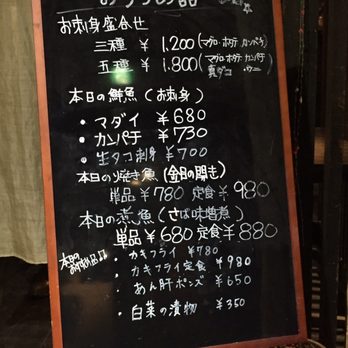 おすすめ品
お刺身盛合せ
三種 ¥1,200 (マグロ・ホタテ カンパチ)
五種 ¥1,800 (マグロ・ホタテ カンパチ
真ダコ・ウニ)
本日の鮮魚(お刺身)
・マダイ ¥680
・カンパチ ¥730
・生タコ刺身 ¥700
本日の焼き魚(金目の開き)
単品¥780 定食¥980
本日の煮魚(さば味噌煮)
単品¥680 定食¥880
本日の
・カキフライ ¥780
・カキフライ定食 ¥980
・あん肝ポンズ ¥650
・白菜の漬物 ¥350